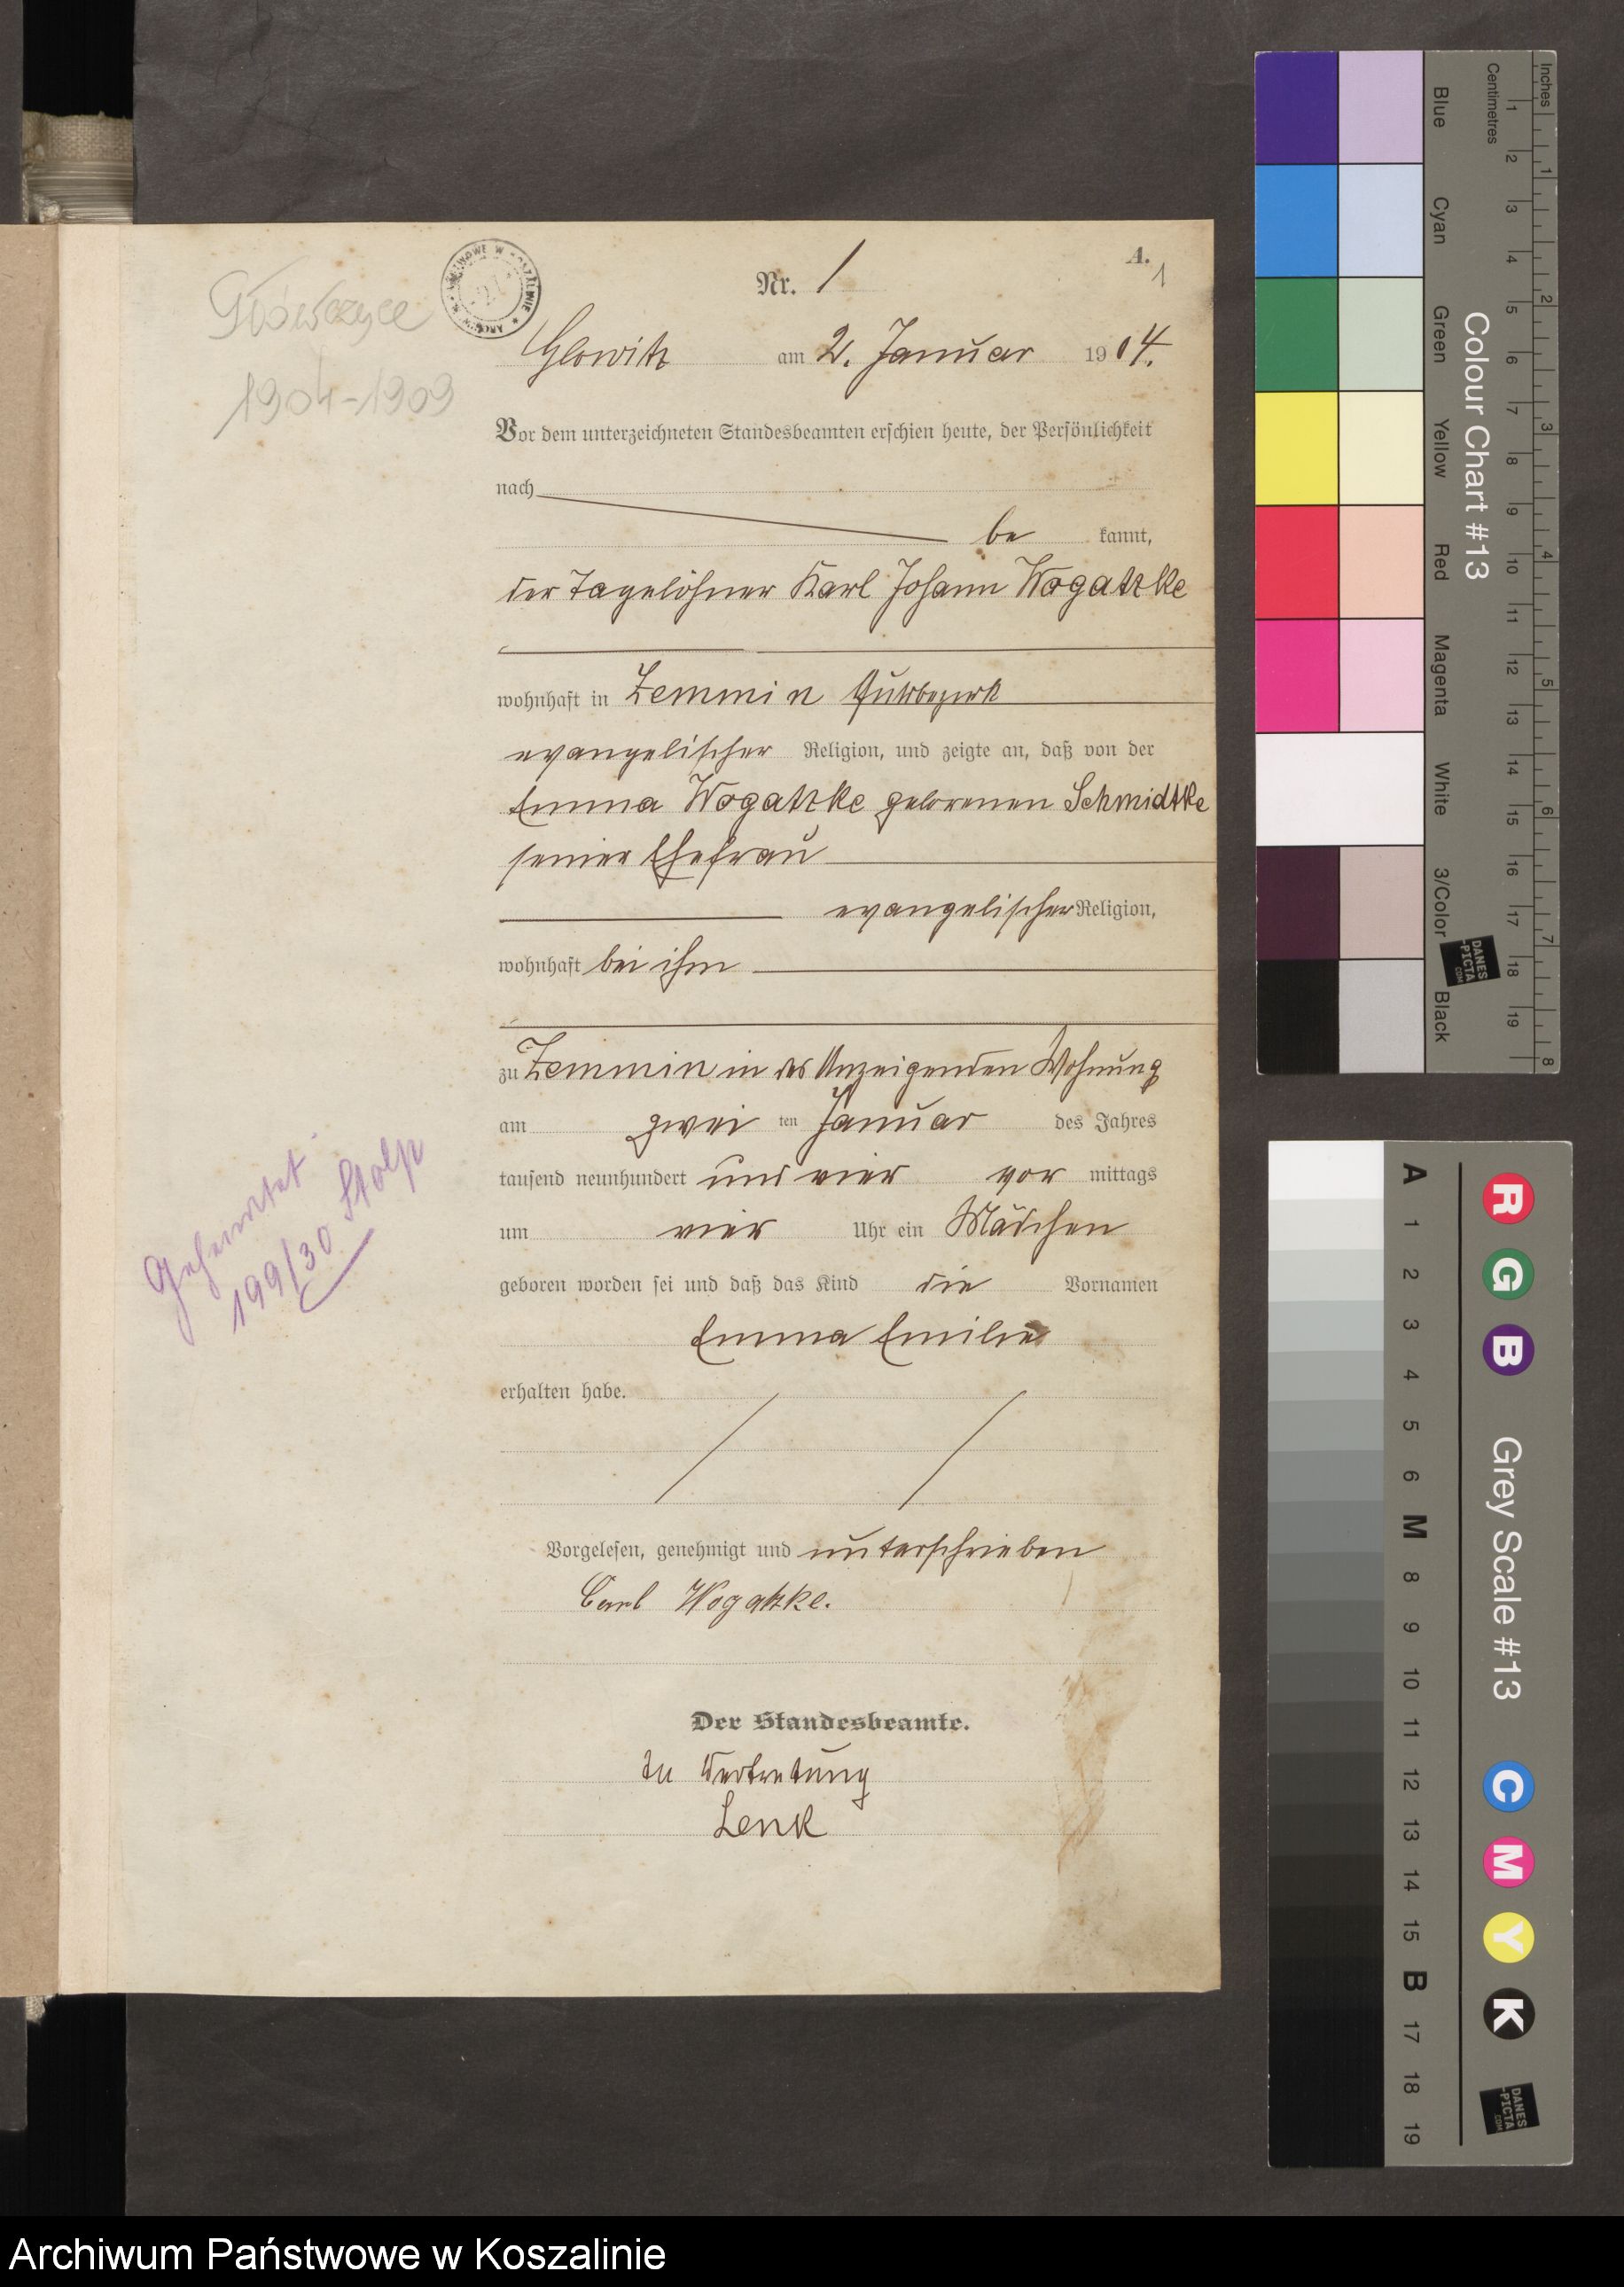 Główczyce
1904-1909
A.
1
Nr. 1
Glowitz am 2. Januar 1904.
Vor dem unterzeichneten Standesbeamten erschien heute, der Persönlichkeit
nach
be kannt,
der Tagelöhner Karl Johann Wogatzke
wohnhaft in Zemmin Gutsbezirk
evangelischer Religion, und zeigte an, daß von der
Emma Wogatzke geborenen Schmidtke
seiner Ehefrau
evangelischer Religion,
wohnhaft bei ihm
zu Zemmin in des Anzeigenden Wohnung
am zwei ten Januar des Jahres
tausend neunhundert und vier vor mittags
um vier Uhr ein Mädchen
geboren worden sei und daß das Kind die Vornamen
Emma Emilie
erhalten habe.
Geheiratet
199/30 Stolp
Vorgelesen, genehmigt und unterschrieben
Carl Wogatzke.
Der Standesbeamte.
In Vertretung
Lenk
Colour Chart #13
Blue
Cyan
Green
Yellow
Red
Magenta
White
3/Color
Black
Centimetres
1 2 3 4 5 6 7 8 9 10 11 12 13 14 15 16 17 18 19
Inches
1 2 3 4 5 6 7 8
DANES
-PICTA
.COM
Grey Scale #13
R G B C M Y K
A 1 2 3 4 5 6 M 8 9 10 11 12 13 14 15 B 17 18 19
DANES
-PICTA
.COM
Archiwum Państwowe w Koszalinie